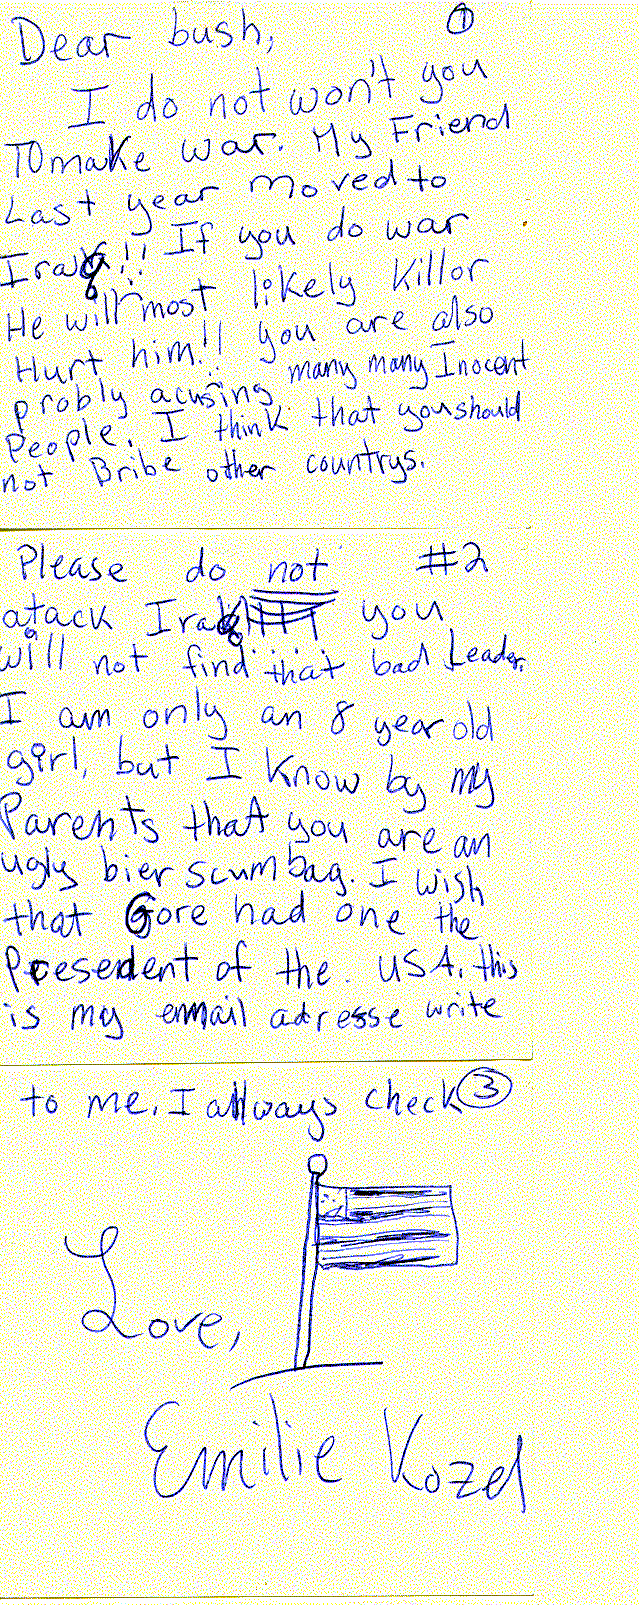 Dear bush, ①
I do not won't you
To make war. My Friend
Last year moved to
Iraq!! If you do war
He will most likely Kill or
Hurt him!! you are also
probly acusing many many Inocent
People. I think that you should
not Bribe other countrys.
Please do not #2
atack Iraq!!!! you
will not find that bad Leader.
I am only an 8 year old
girl, but I know by my
Parents that you are an
ugly bier scumbag. I wish
that Gore had one the
Presedent of the USA. this
is my email adresse write
to me. I allways check ③
Love,
Emilie Kozel